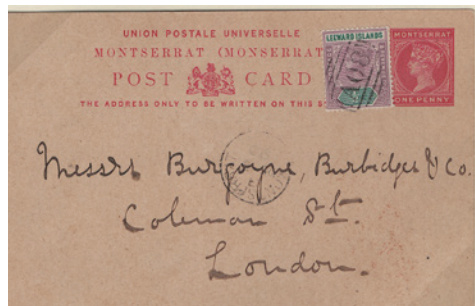 UNION POSTALE UNIVERSELLE
MONTSERRAT (MONSERRAT
POST CARD
THE ADDRESS ONLY TO BE WRITTEN ON THIS
LEEWARD ISLANDS
A08
MONTSERRAT
ONE PENNY
Messrs Burgoyne, Burbidges & Co.
Coleman St.
London.